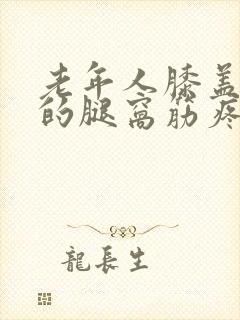 老年人膝盖
的腿窝筋疼
龍長生